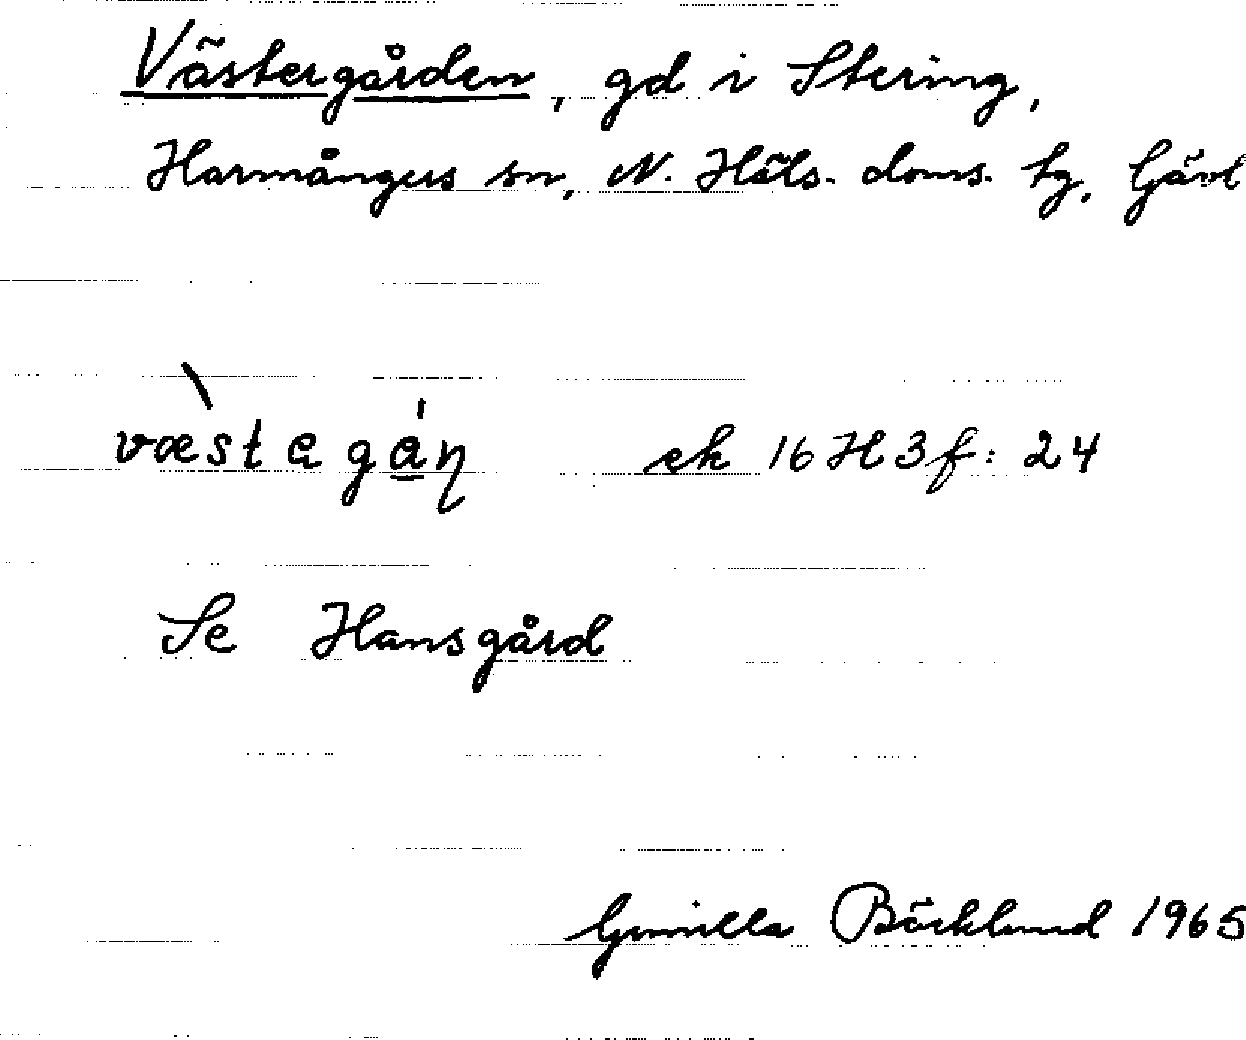 Västergården, gd i Stering,
Harmångers sn, N. Häls. doms. tg, Gävl
væ̀stagán ek 16H3f: 24
Se Hansgård
Gunilla Bäcklund 1965